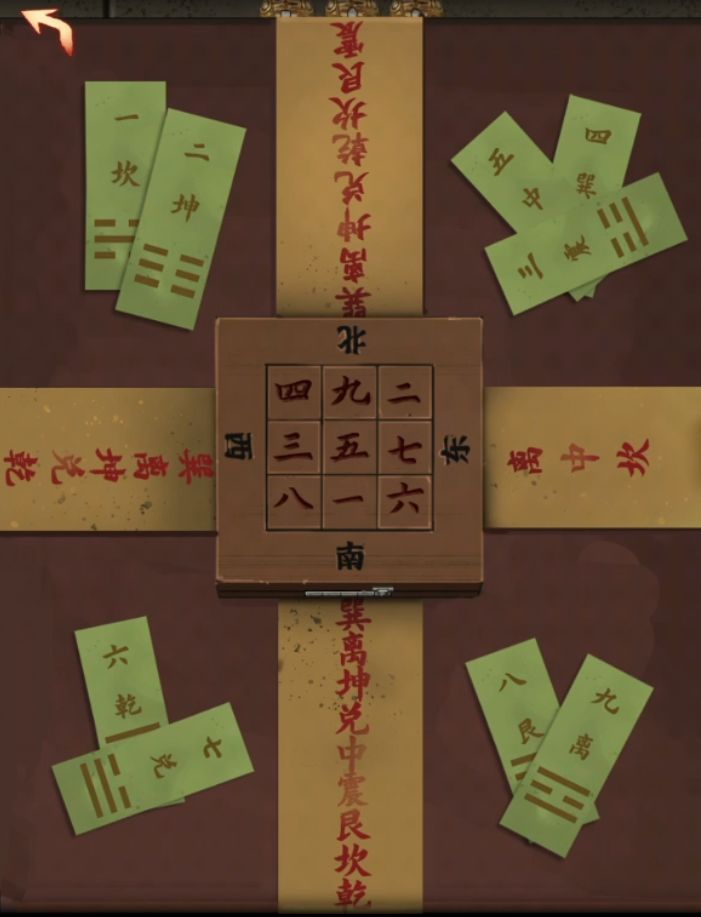 巽离坤兑乾坎艮震
一
坎
二
坤
五
中
四
巽
三
震
北
西
东
南
四九二
三五七
八一六
巽离坤兑乾
离中坎
巽离坤兑中震艮坎乾
六
乾
七
兑
八
艮
九
离